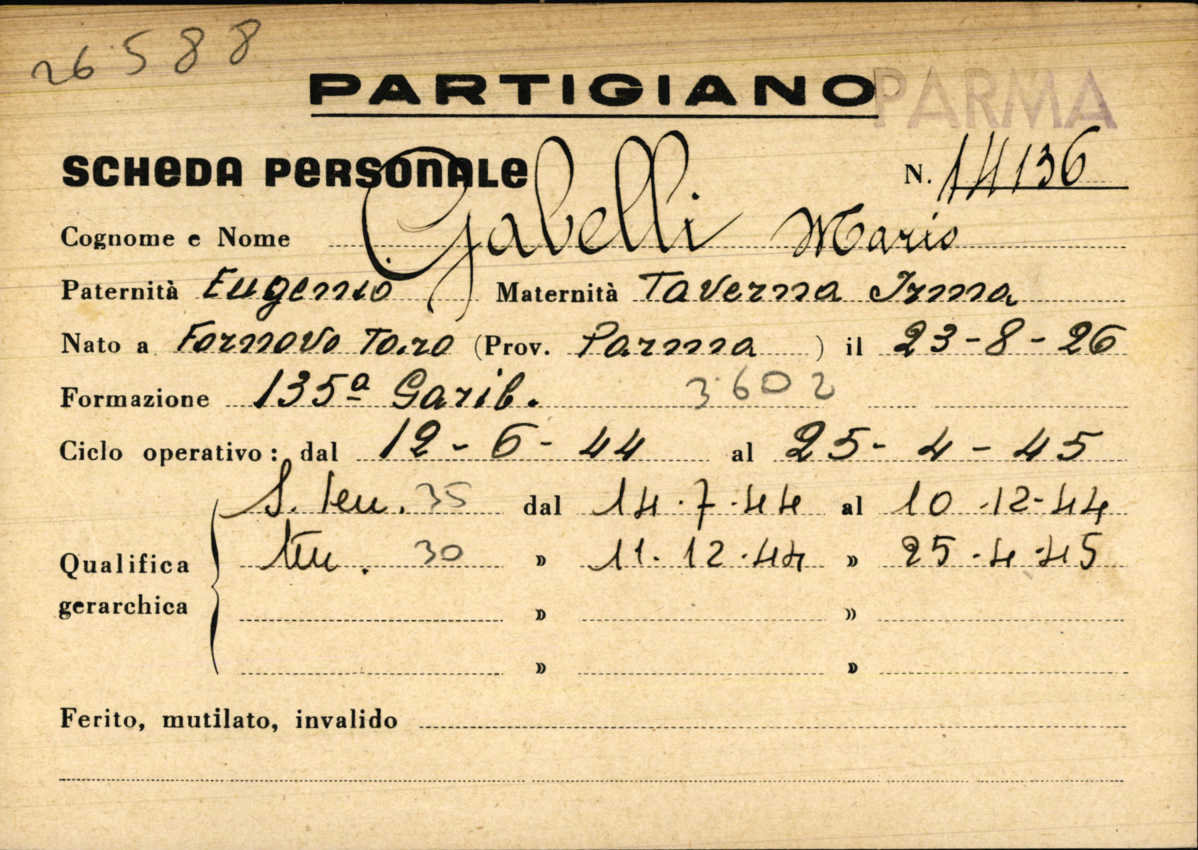 26588
PARTIGIANO PARMA
SCHEDA PERSONALE N. 14136
Cognome e Nome Gabelli Mario
Paternità Eugenio Maternità Taverna Irma
Nato a Fornovo Taro (Prov. Parma ) il 23-8-26
Formazione 135ª Garib. 3602
Ciclo operativo: dal 12-6-44 al 25-4-45
S. ten. 35 dal 14.7.44 al 10.12-44
ten. 30 » 11.12.44 » 25.4.45
Qualifica
gerarchica
» »
» »
Ferito, mutilato, invalido